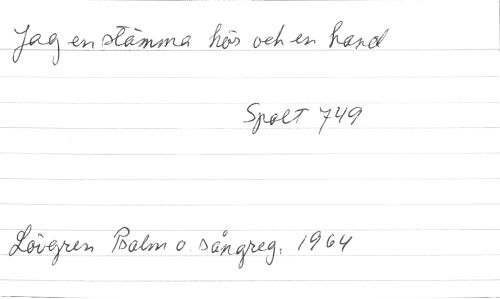 Jag en stämma hör och en hand
Spalt 749
Lövgren Psalm o. sångreg. 1964